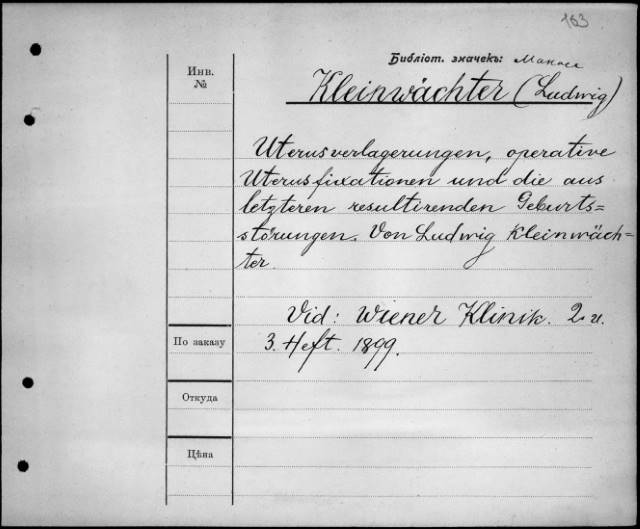 163
Библіот. значекъ:
Инв.
№
Kleinwächter (Ludwig)
Uterusverlagerungen, operative
Uterusfixationen und die aus
letzteren resultirenden Geburts=
störungen. Von Ludwig Kleinwäch=
ter.
Vid: Wiener Klinik. 2 u.
По заказу
3. Heft. 1899.
Откуда
Цѣна